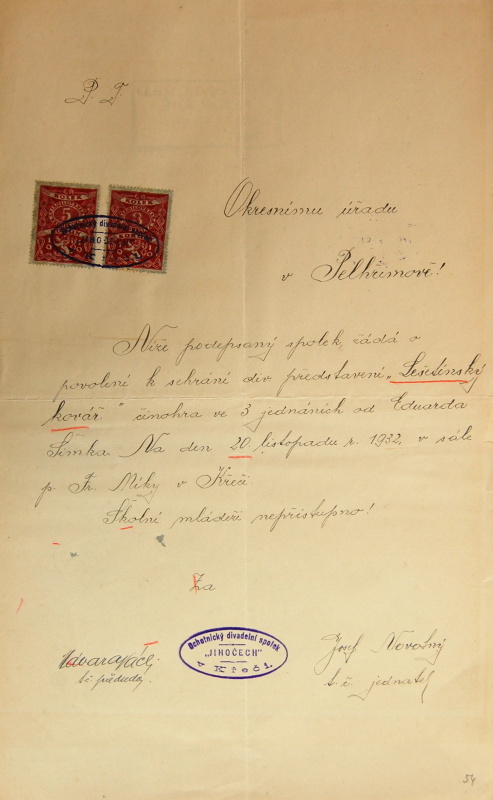 P. T.
KOLEK
5
KOLEK
Okresnímu úřadu
v Pelhřimově!
Níže podepsaný spolek, žádá o
povolení k sehrání div. představení „Lešetínský
kovář" činohra ve 3 jednáních od Eduarda
Šimka. Na den 20. listopadu r. 1932, v sále
p. Fr. Míky v Křeči.
Školní mládeži nepřístupno!
Za
Ochotnický divadelní spolek
„JIHOČECH"
v Křeči.
Josef Novotný
t. č. předseda
t. č. jednatel
54